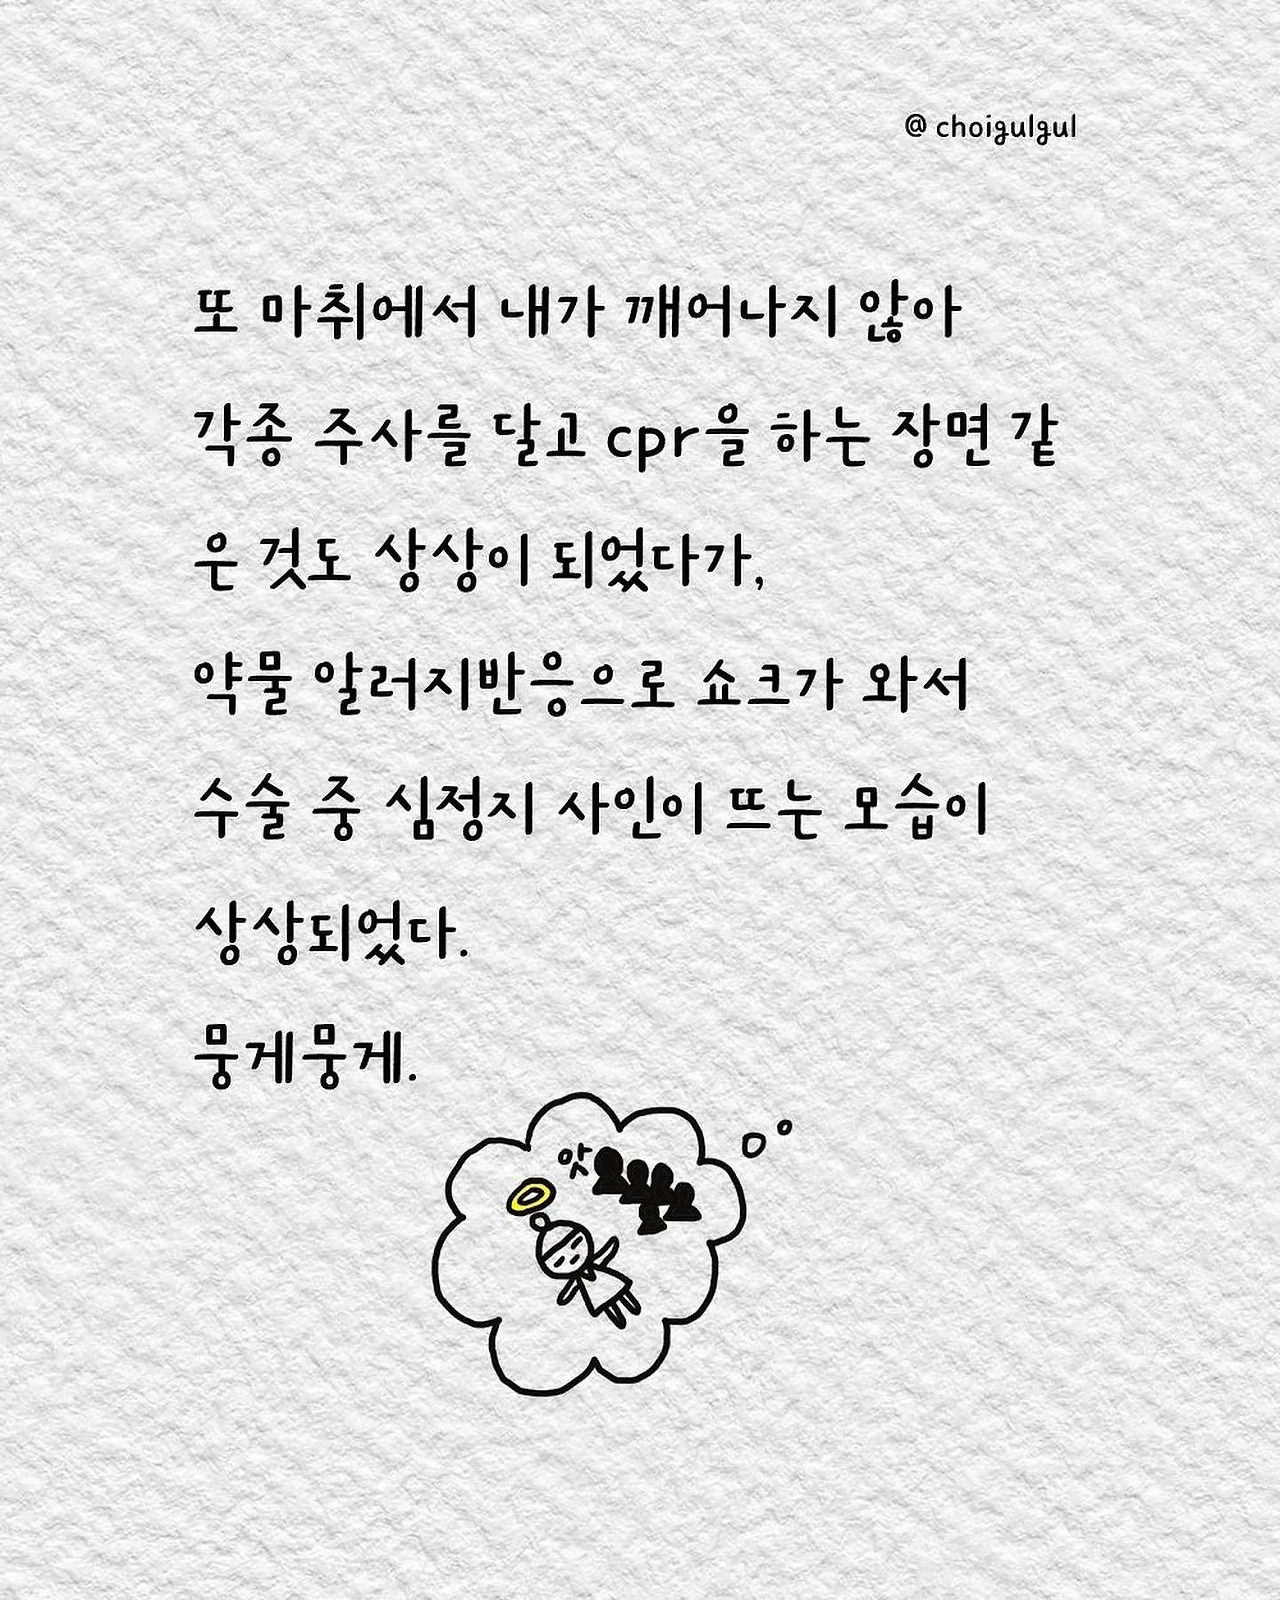 @ choigulgul
또 마취에서 내가 깨어나지 않아
각종 주사를 달고 cpr을 하는 장면 같
은 것도 상상이 되었다가,
약물 알러지반응으로 쇼크가 와서
수술 중 심정지 사인이 뜨는 모습이
상상되었다.
뭉게뭉게.
앗